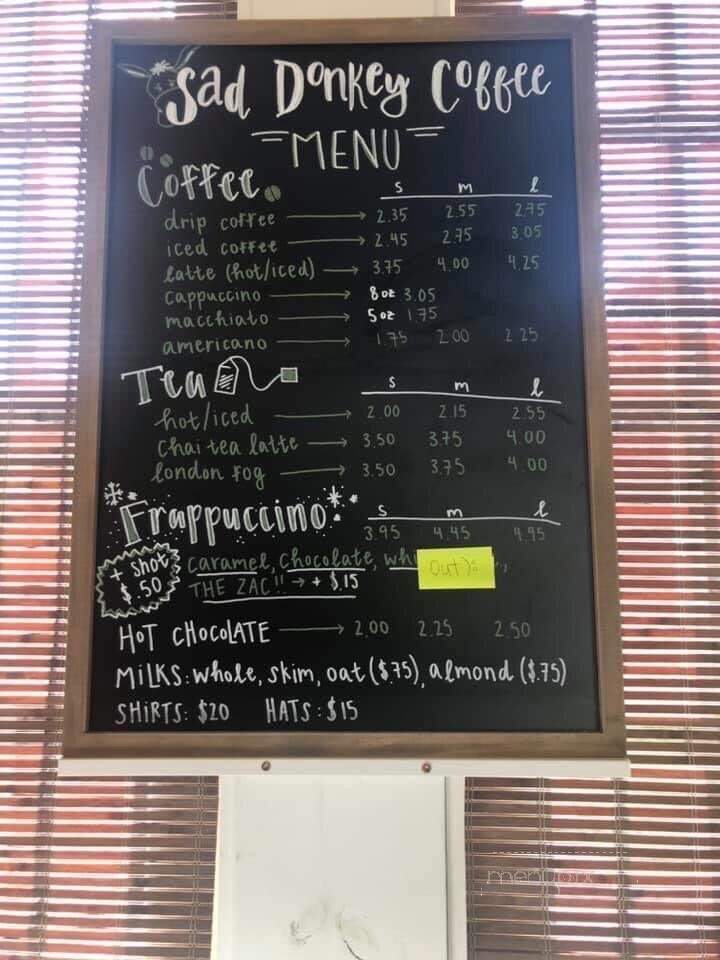 Sad Donkey Coffee
MENU
Coffee
s m l
drip coffee 2.35 2.55 2.75
iced coffee 2.45 2.75 3.05
latte (hot/iced) 3.75 4.00 4.25
cappuccino 8oz 3.05
macchiato 5oz 1.75
americano 1.75 2.00 2.25
Tea
s m l
hot/iced 2.00 2.15 2.55
chai tea latte 3.50 3.75 4.00
london fog 3.50 3.75 4.00
Frappuccino
s m l
3.95 4.45 4.95
+ shot
$.50
caramel, chocolate,
out ):
THE ZAC!! → + $.15
HOT CHOCOLATE 2.00 2.25 2.50
MILKS: whole, skim, oat ($.75), almond ($.75)
SHIRTS: $20 HATS: $15
menupix